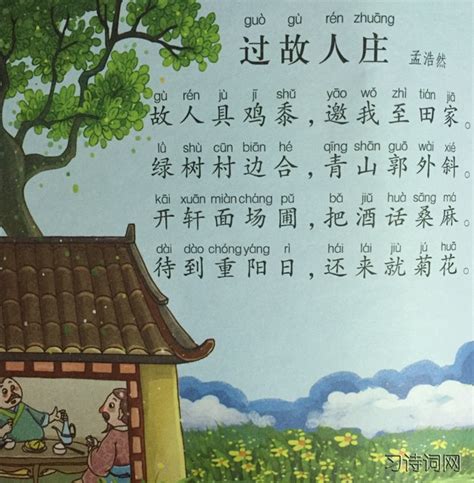 guò gù rén zhuāng
过故人庄 孟浩然
gù rén jù jī shǔ yāo wǒ zhì tián jiā
故人具鸡黍，邀我至田家。
lǜ shù cūn biān hé qīng shān guō wài xié
绿树村边合，青山郭外斜。
kāi xuān miàn cháng pǔ bǎ jiǔ huà sāng má
开轩面场圃，把酒话桑麻。
dài dào chóng yáng rì hái lái jiù jú huā
待到重阳日，还来就菊花。
习诗词网